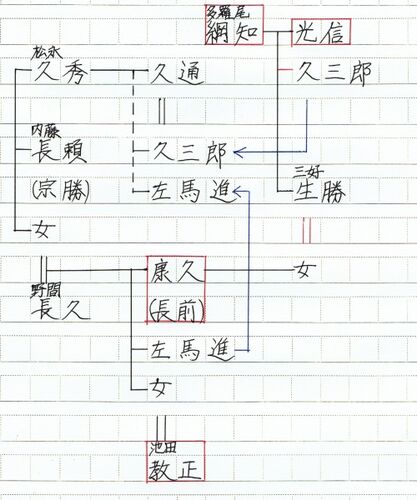 多羅尾
綱知 光信
松永
久秀 久通 久三郎
内藤
長頼 久三郎
三好
(宗勝) 左馬進 生勝
女
康久 女
野間
長久 (長前)
左馬進
女
池田
教正